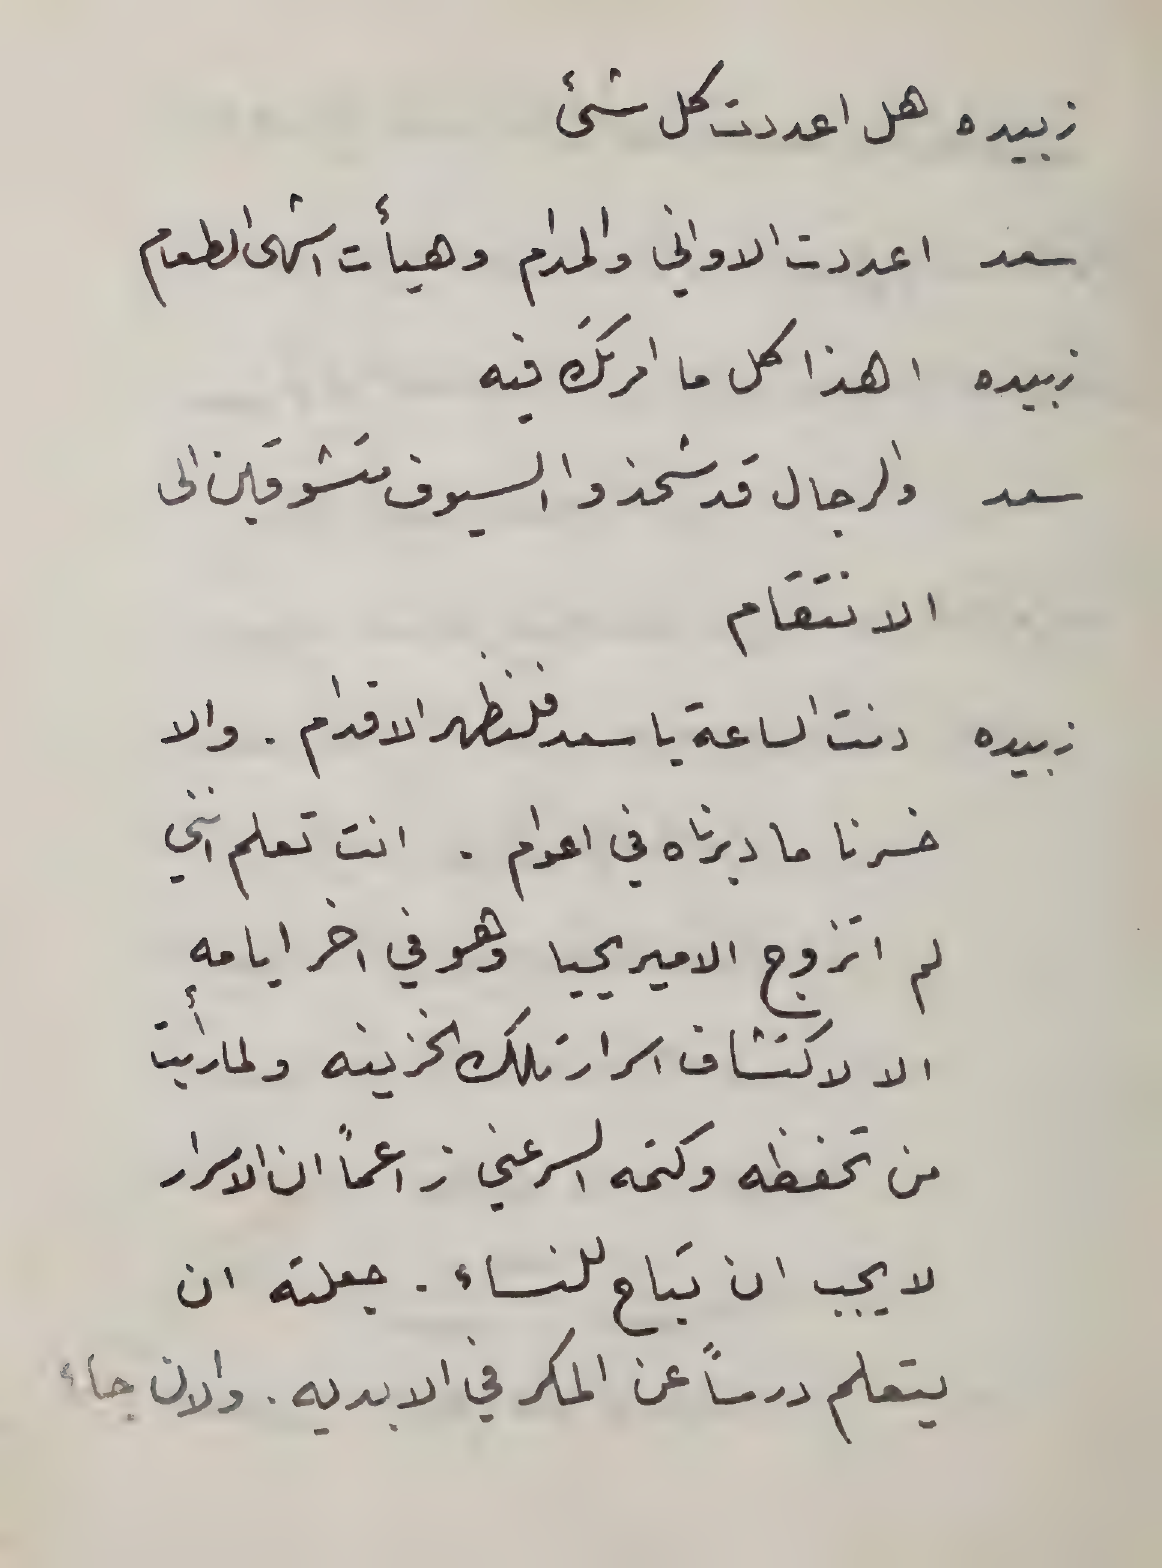 زبيده هل اعددت كل شئ
سعد اعددت الاواني والمدام وهيأت اشهى الطعام
زبيده اهذا كل ما امرتك فيه
سعد والرجال قد شحذوا السيوف متشوقين الى
الانتقام
زبيده دنت الساعة يا سعد فلنظهر الاقدام . والا
خسرنا ما دبرناه في اعوام . انت تعلم انني
لم اتزوج الامير يحيا وهو في اخر ايامه
الا لاكتشاف اسرار تلك الخزينه ولما رأيت
من تحفظه وكتمه السر عني زاعماً ان الاسرار
لا يجب ان تباح للنساء . جعلته ان
يتعلم درساً عن المكر في الابديه . والان جاء